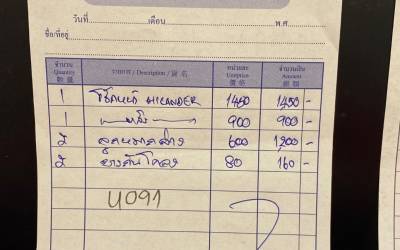 วันที่ เดือน พ.ศ.
ชื่อ/ที่อยู่
จำนวน Quantity 數量 รายการ / Description / 貨名 หน่วยละ Unitprice 價格 จำนวนเงิน Amount 銀額
1 โช๊คหน้า HILANDER 1450 1450 -
1 —หลัง— 900 900 -
2 ลูกหมากล่าง 600 1,200 -
2 ยางกันโคลง 80 160 -
4091